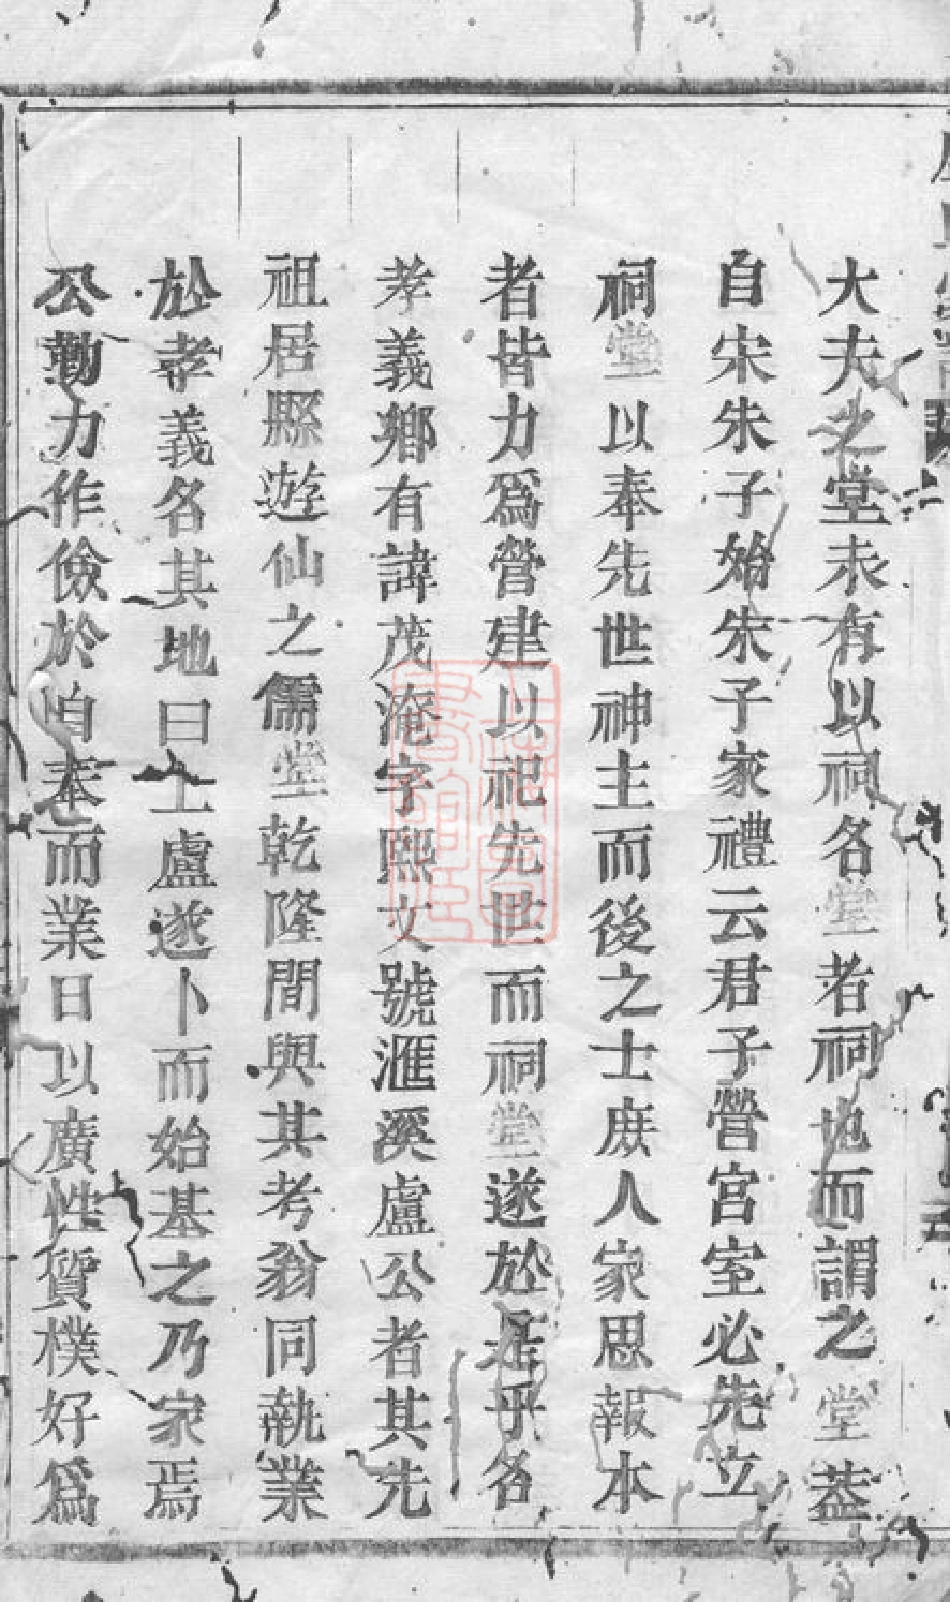 大夫之堂未有以祠各堂者祠也而謂之堂葢
自宋朱子始朱子家禮云君子營宮室必先立
祠堂以奉先世神主而後之士庶人家思報本
者皆力爲營建以祀先世而祠堂遂於是乎各
孝義鄉有諱茂淹字熙文號滙溪盧公者其先
祖居縣遊仙之儒堂乾隆間與其考翁同執業
於孝義名其地曰上盧遂卜而始基之乃家焉
公勤力作儉於自奉而業日以廣性質樸好爲